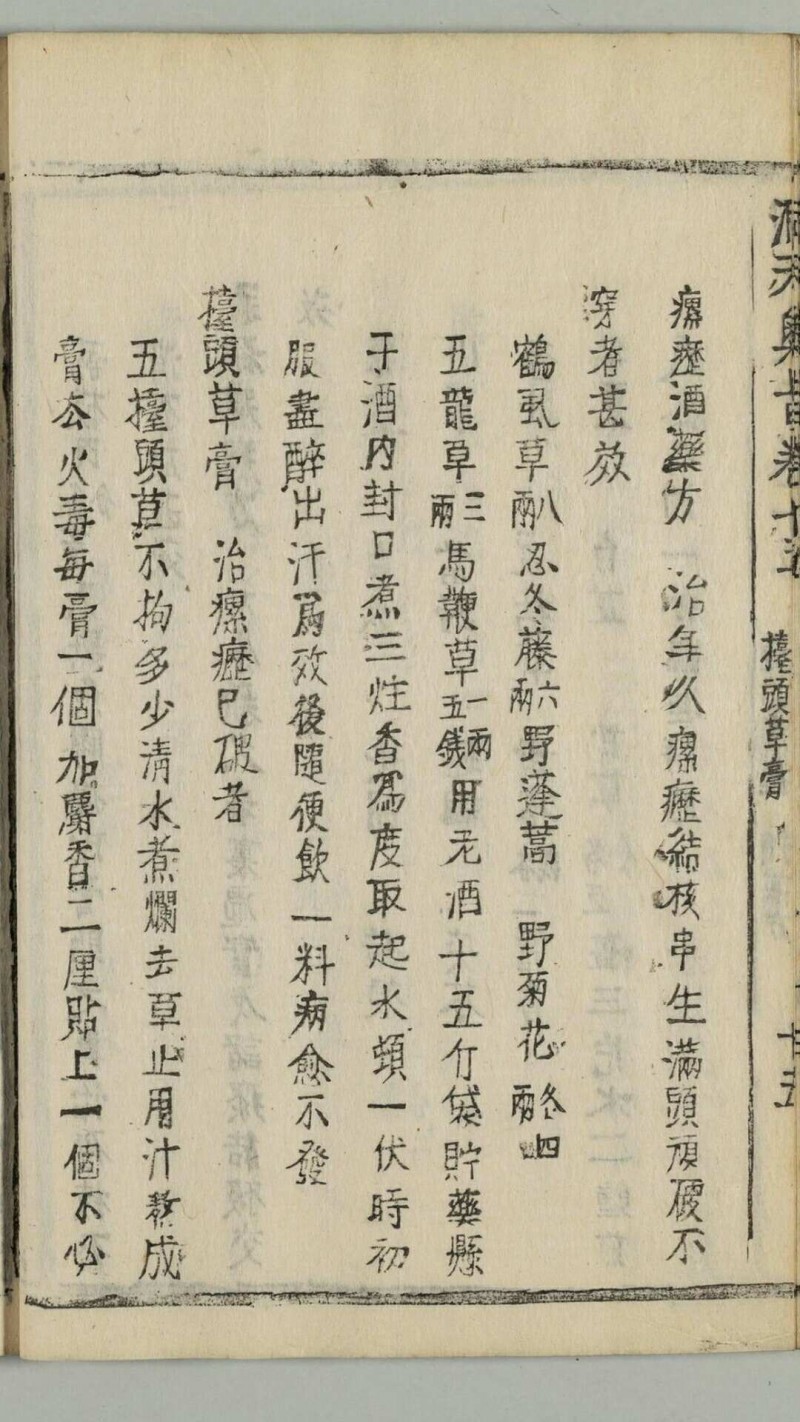 洞天奧旨卷十五 擡頭草膏 廿五
瘰癧酒藥方 治年久瘰癧結核串生滿頭頂破不
穿者甚效
鶴虱草八兩忍冬藤六兩野蓬蒿 野菊花各四兩
五龍草三兩馬鞭草一兩五錢用无酒十五斤袋貯藥懸
于酒内封口煮三炷香爲度取起水頓一伏時初
服盡醉出汗爲效後隨便飲一料病愈不發
擡頭草膏 治瘰癧已破者
五擡頭草不拘多少清水煮爛去草止用汁熬成
膏去火毒每膏一個加麝香二厘貼上一個不必